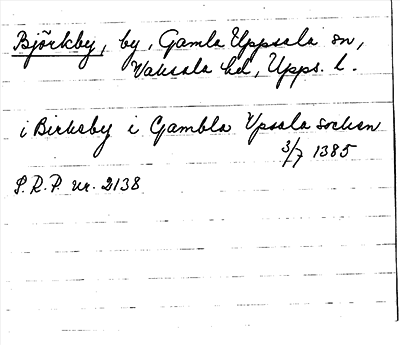 Björkby, by, Gamla Uppsala sn,
Vaksala hd, Upps. l.
i Birkeby i Gambla Vpsala sochen
3/7 1385
S.R.P. nr. 2138